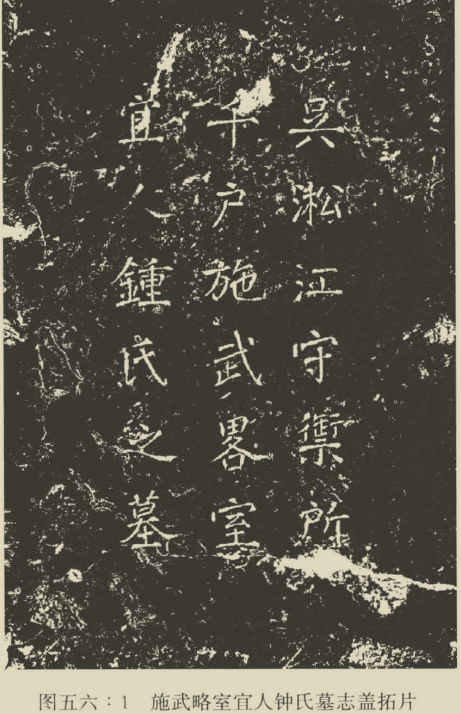 吴淞江守禦所
千户施武畧室
宜人鍾氏之墓
图五六：1 施武略室宜人钟氏墓志盖拓片